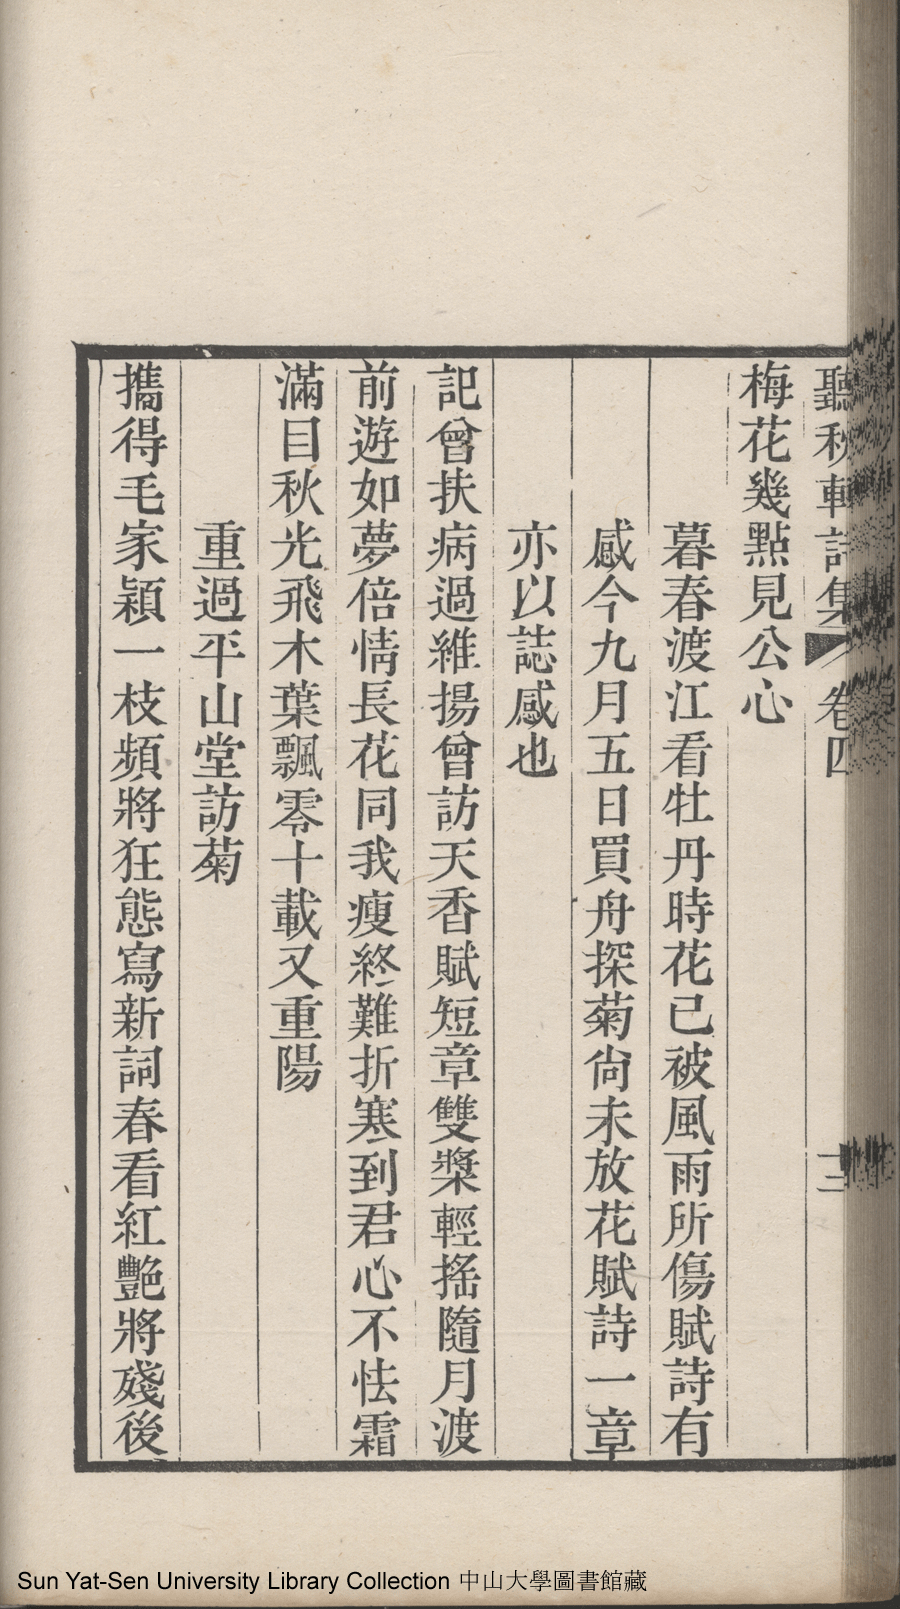 聽秋軒詩集 卷四 十三
梅花幾點見公心
暮春渡江看牡丹時花已被風雨所傷賦詩有
感今九月五日買舟探菊尙未放花賦詩一章
亦以誌感也
記曾扶病過維揚曾訪天香賦短章雙槳輕搖隨月渡
前遊如夢倍情長花同我瘦終難折寒到君心不怯霜
滿目秋光飛木葉飄零十載又重陽
重過平山堂訪菊
攜得毛家穎一枝頻將狂態寫新詞春看紅艷將殘後
Sun Yat-Sen University Library Collection 中山大學圖書館藏